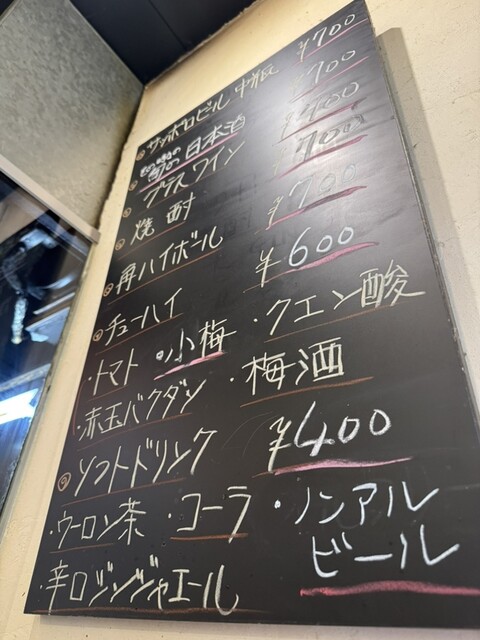 サッポロビール 中瓶 ¥700
その時の旬の日本酒 ¥700
グラスワイン ¥700
焼酎 ¥700
再ハイボール ¥700
チューハイ ¥600
・トマト ・小梅 ・クエン酸
・赤玉バクダン ・梅酒
ソフトドリンク ¥400
・ウーロン茶 ・コーラ ・ノンアル
ビール
・辛口ジンジャエール